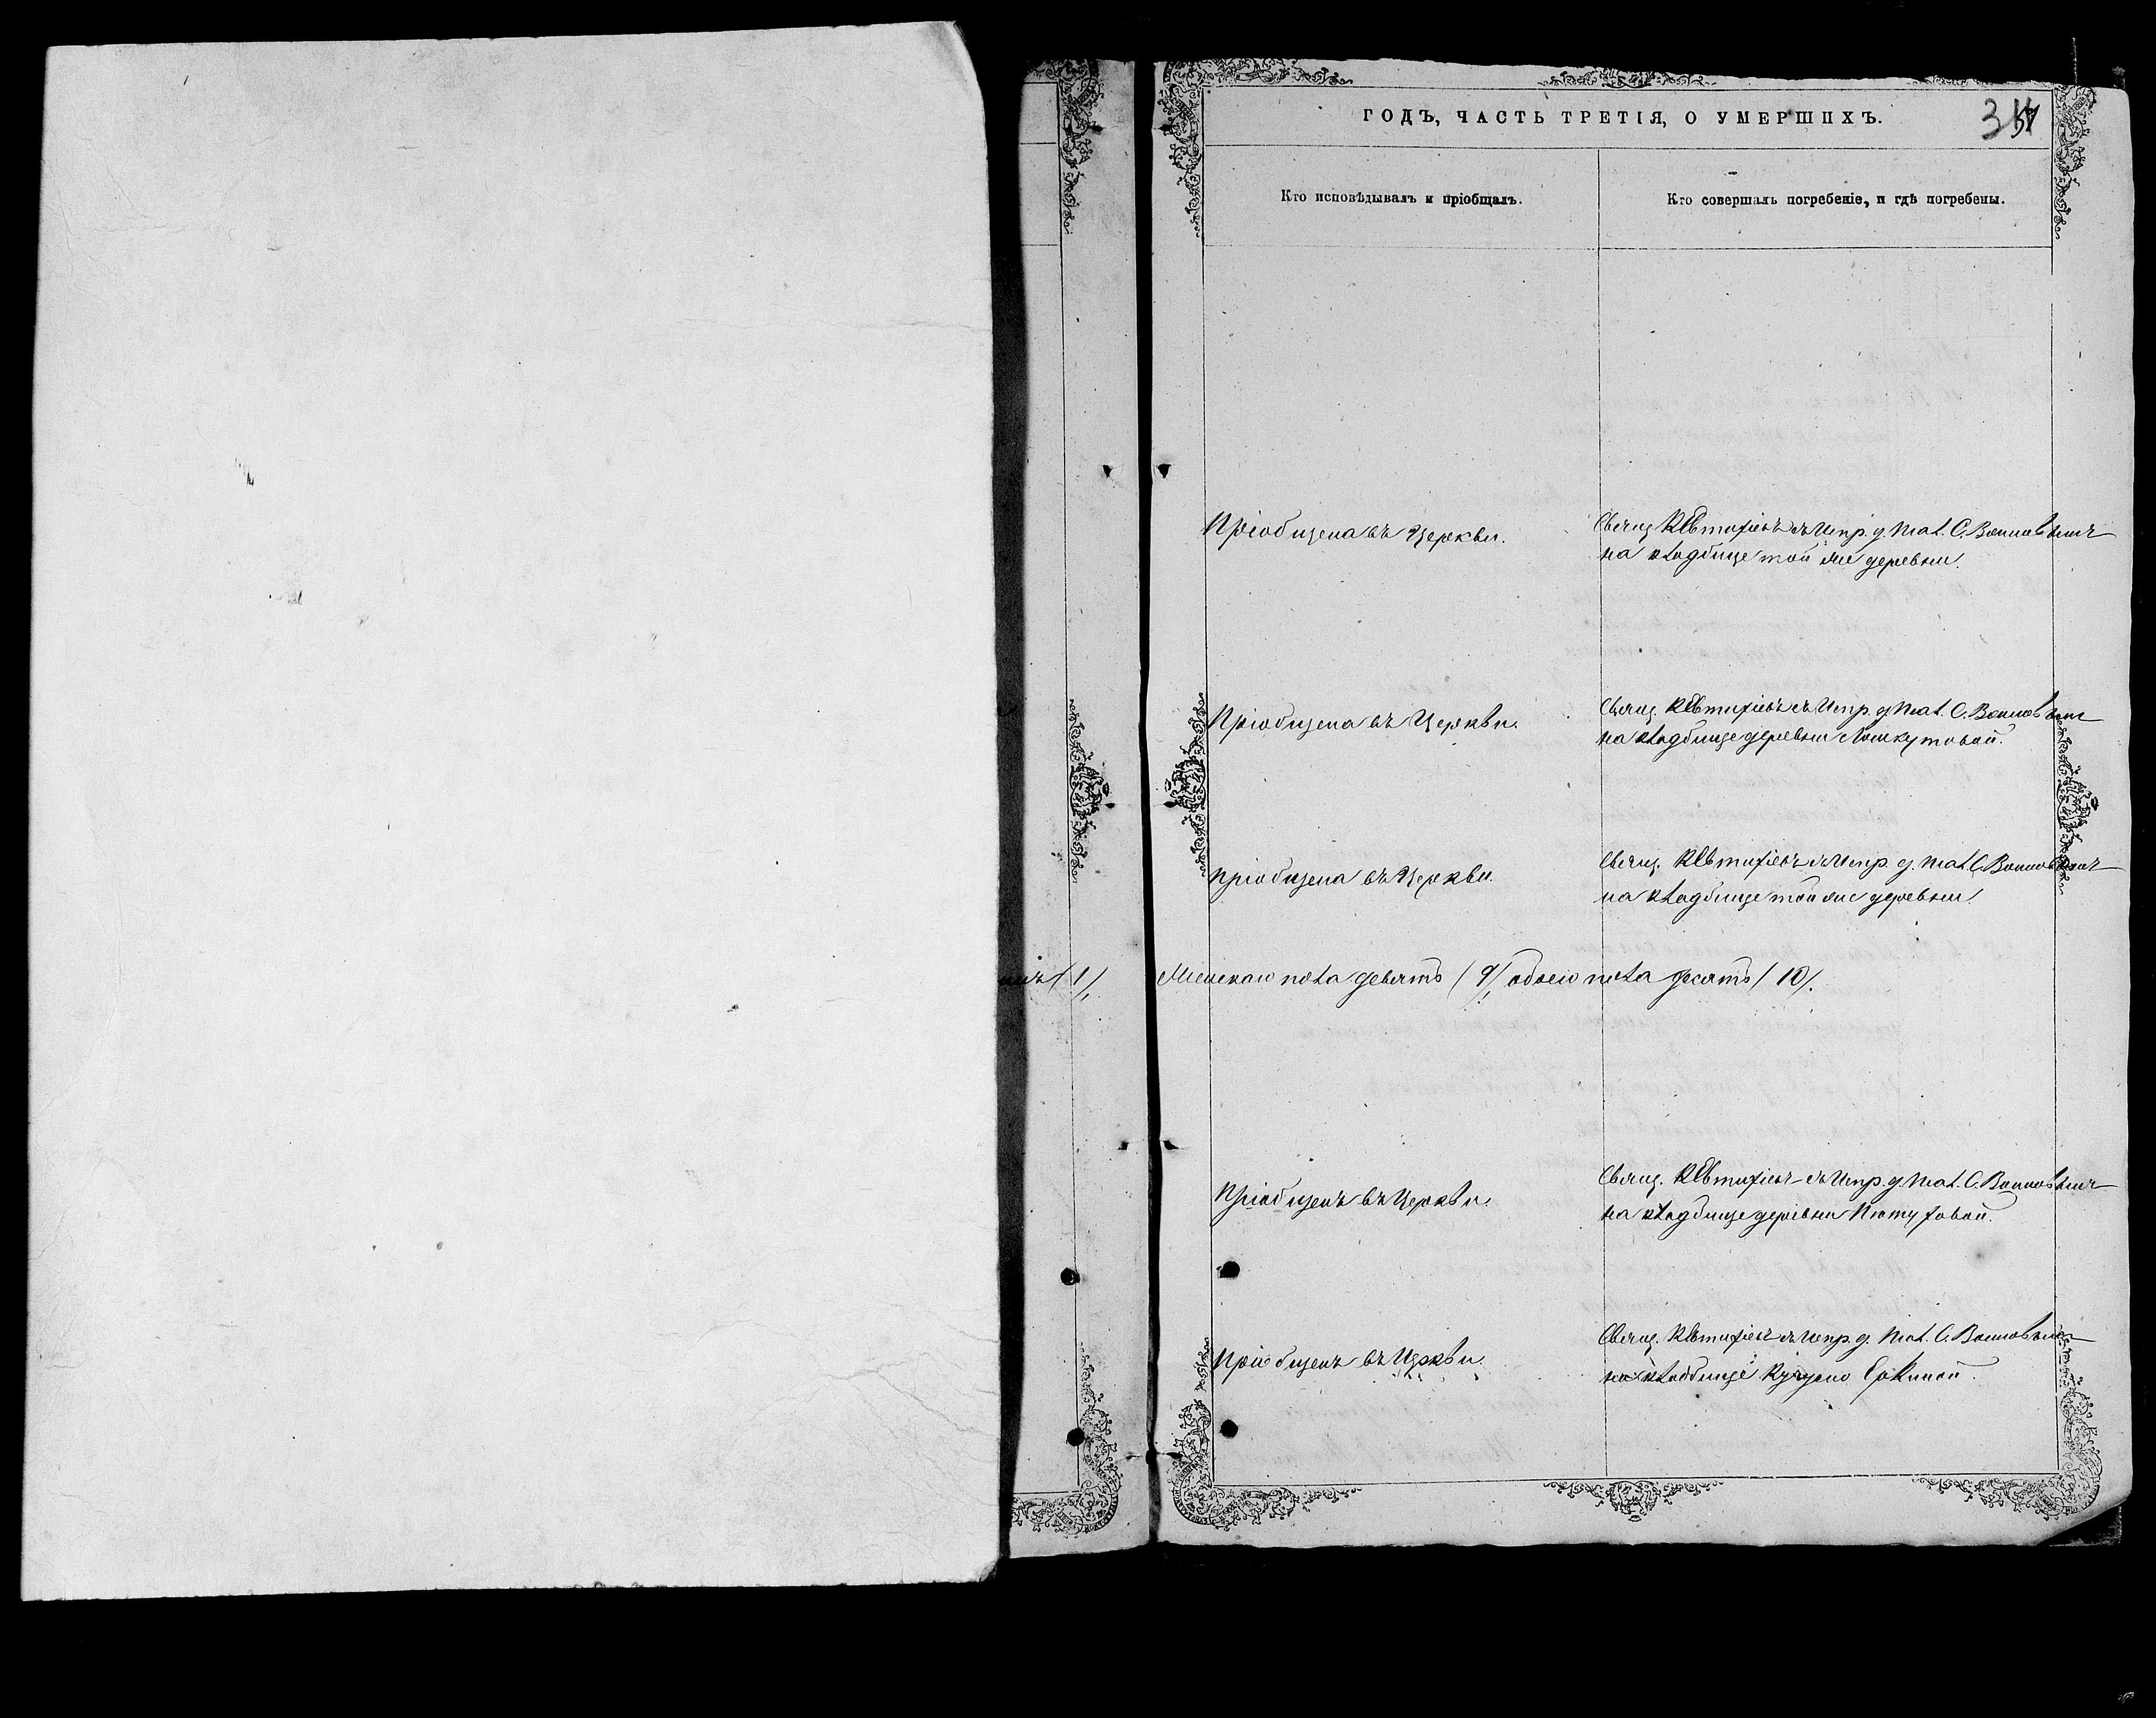 ГОДЪ, ЧАСТЬ ТРЕТІЯ, О УМЕРШИХЪ.
Кто исповѣдывалъ и пріобщалъ.
Кто совершалъ погребеніе, и гдѣ погребены.
Пріобщена въ Церкви.
Свящ. К Евтихіевъ съ Испр. д. Псал. С.
на кладбище той же деревни.
Пріобщена въ Церкви.
Свящ. К Евтихіевъ съ Испр. д. Псал. С.
на кладбище деревни
Пріобщена въ Церкви.
Свящ. К Евтихіевъ съ Испр. д. Псал. С.
на кладбище той же деревни.
(1/. Женскаго пола девять (9/, обоего пола десять (10/.
Пріобщенъ въ Церкви.
Свящ. К Евтихіевъ съ Испр. д. Псал. С.
на кладбище деревни
Пріобщенъ въ Церкви.
Свящ. К Евтихіевъ съ Испр. д. Псал. С.
на кладбище